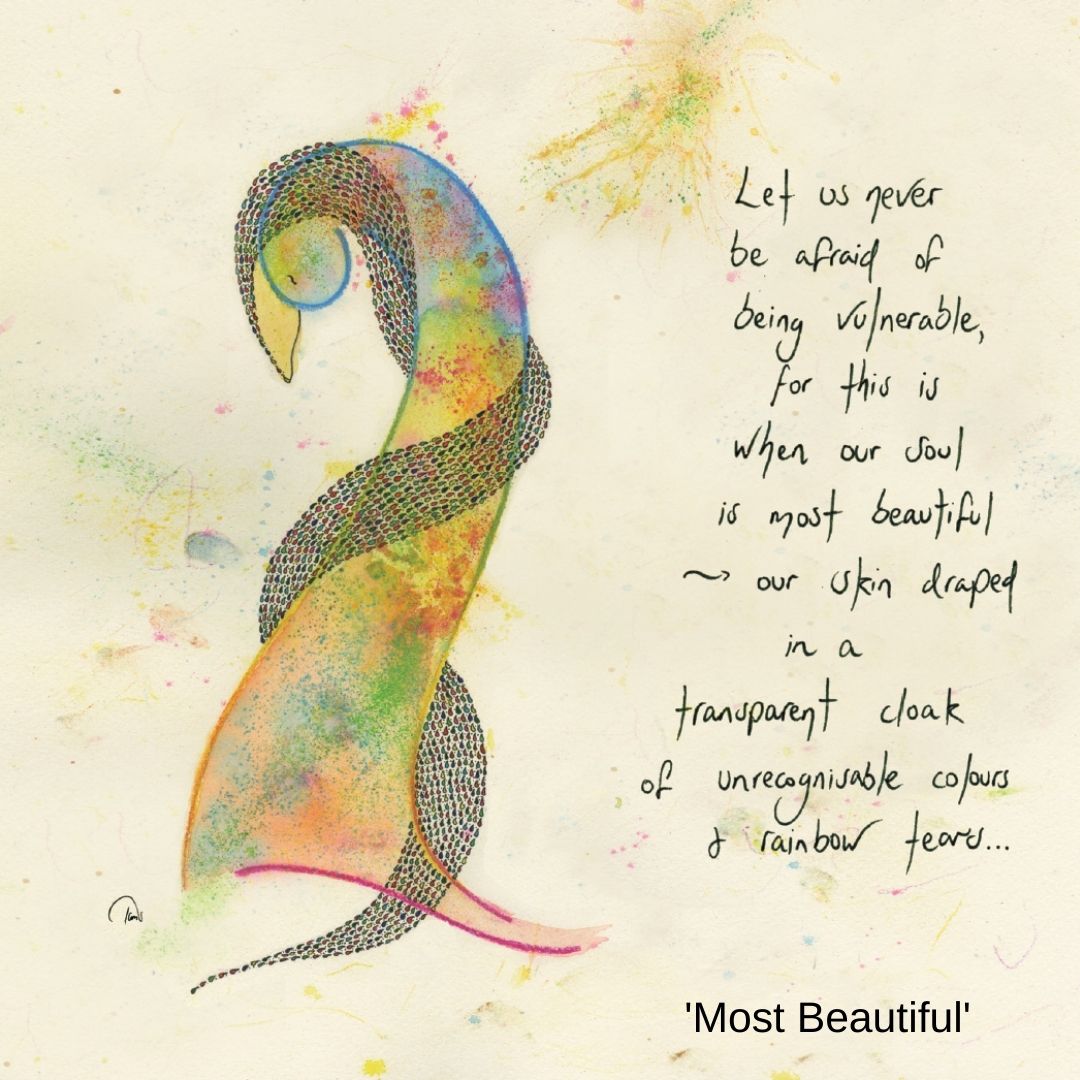 Let us never
be afraid of
being vulnerable,
for this is
when our soul
is most beautiful
~ our skin draped
in a
transparent cloak
of unrecognisable colours
& rainbow tears...
'Most Beautiful'